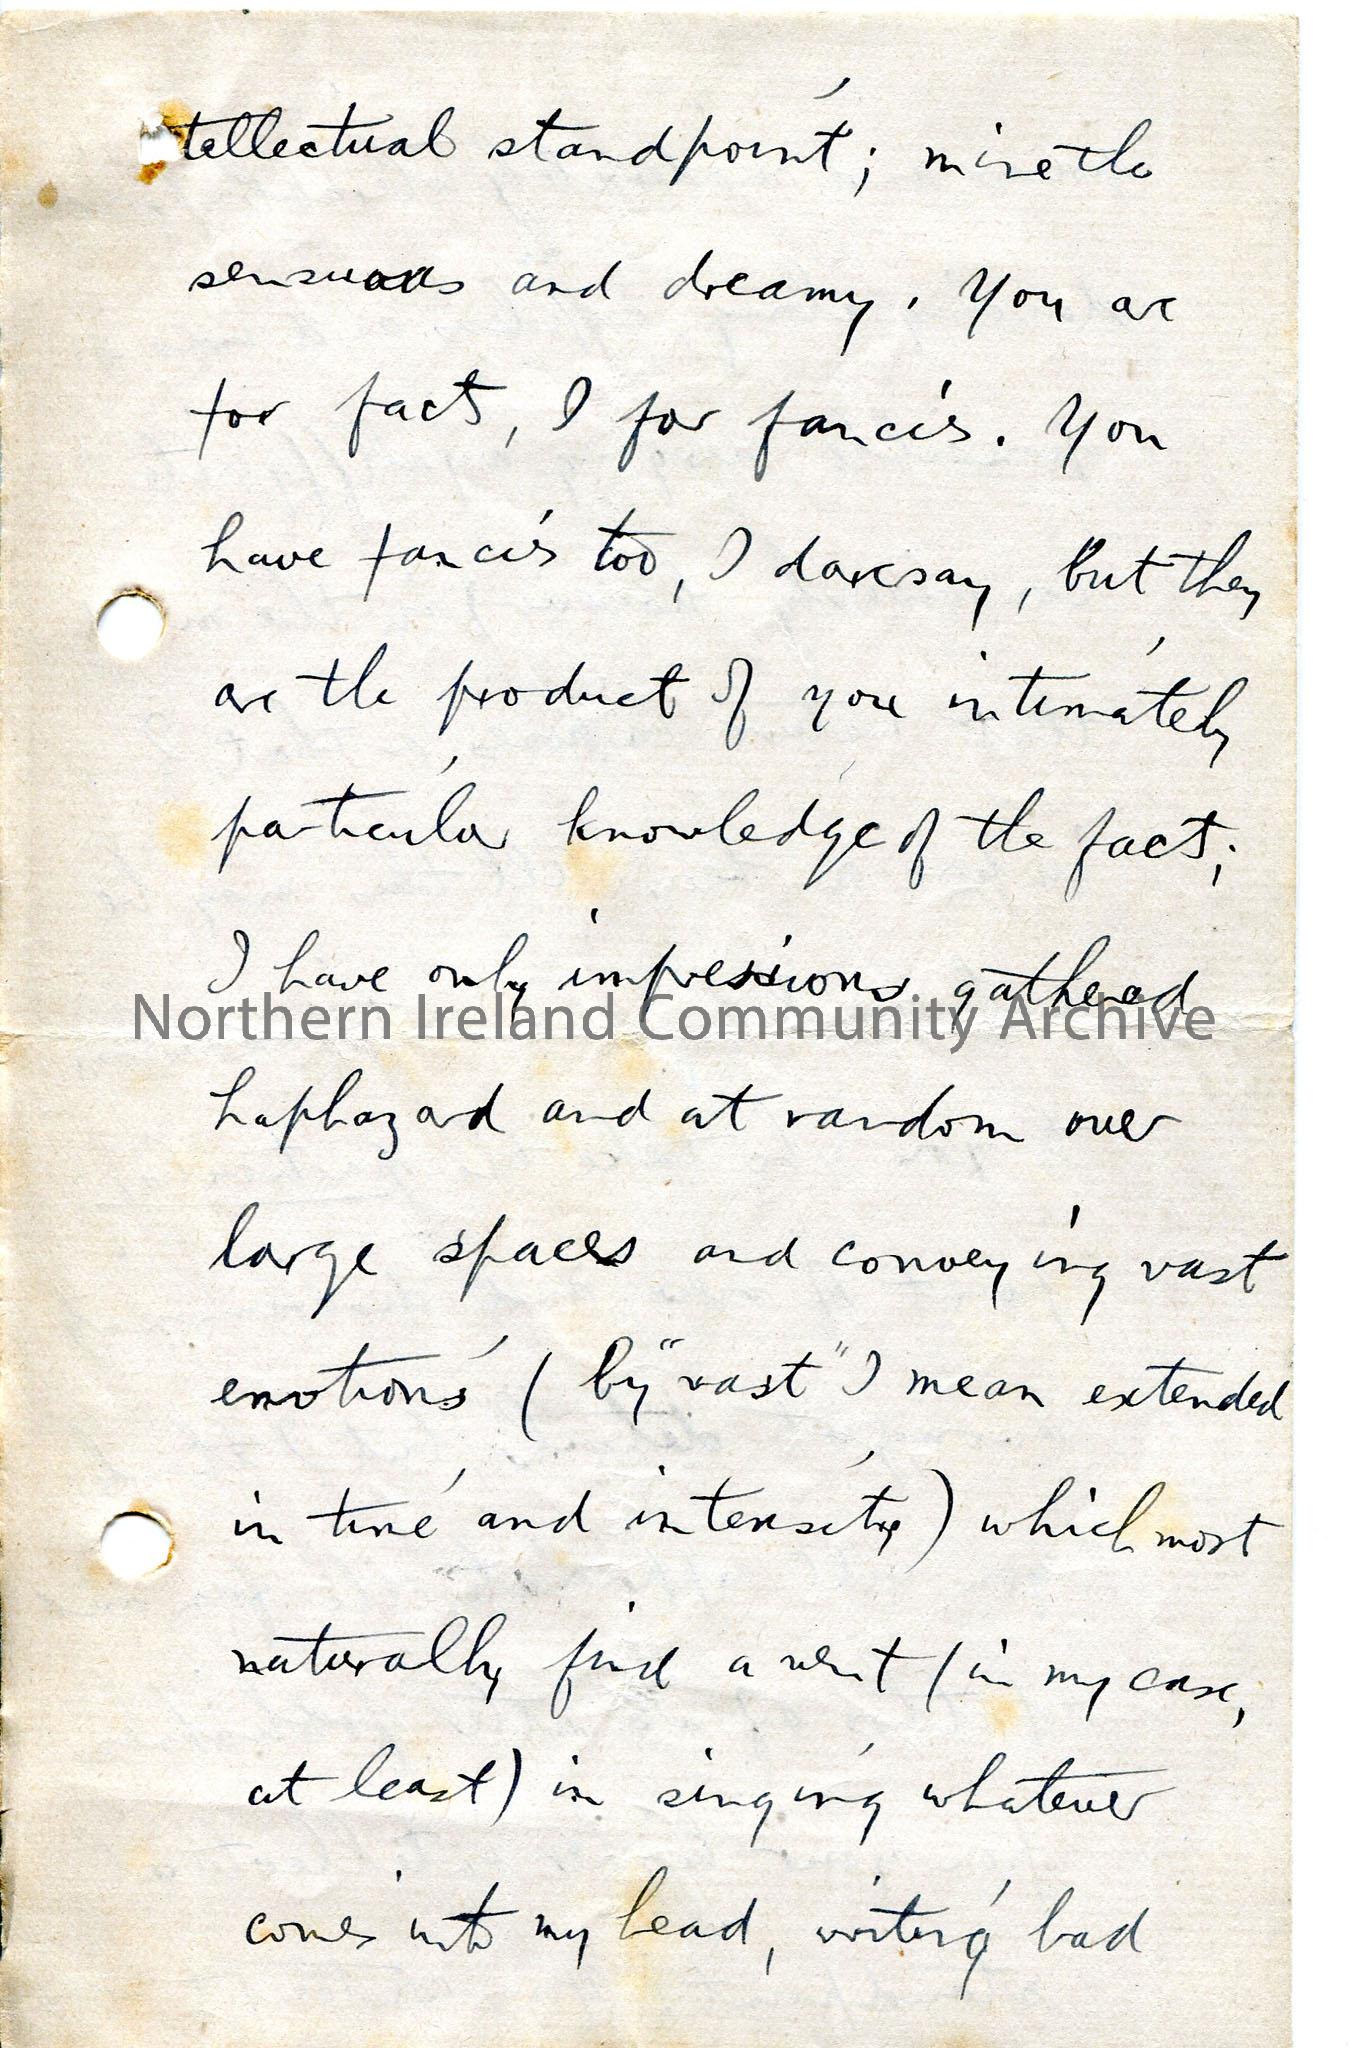 tellectual standpoint; mine the
sensuous and dreamy. You are
for fact, I for fancies. You
have fancies too, I daresay, but they
are the product of your intimately
particular knowledge of the fact;
I have only impressions gathered
Northern Ireland Community Archive
haphazard and at random over
large spaces and conveying vast
emotions (by "vast" I mean extended
in time and intensity) which most
naturally find a vent (in my case,
at least) in singing whatever
comes into my head, writing bad